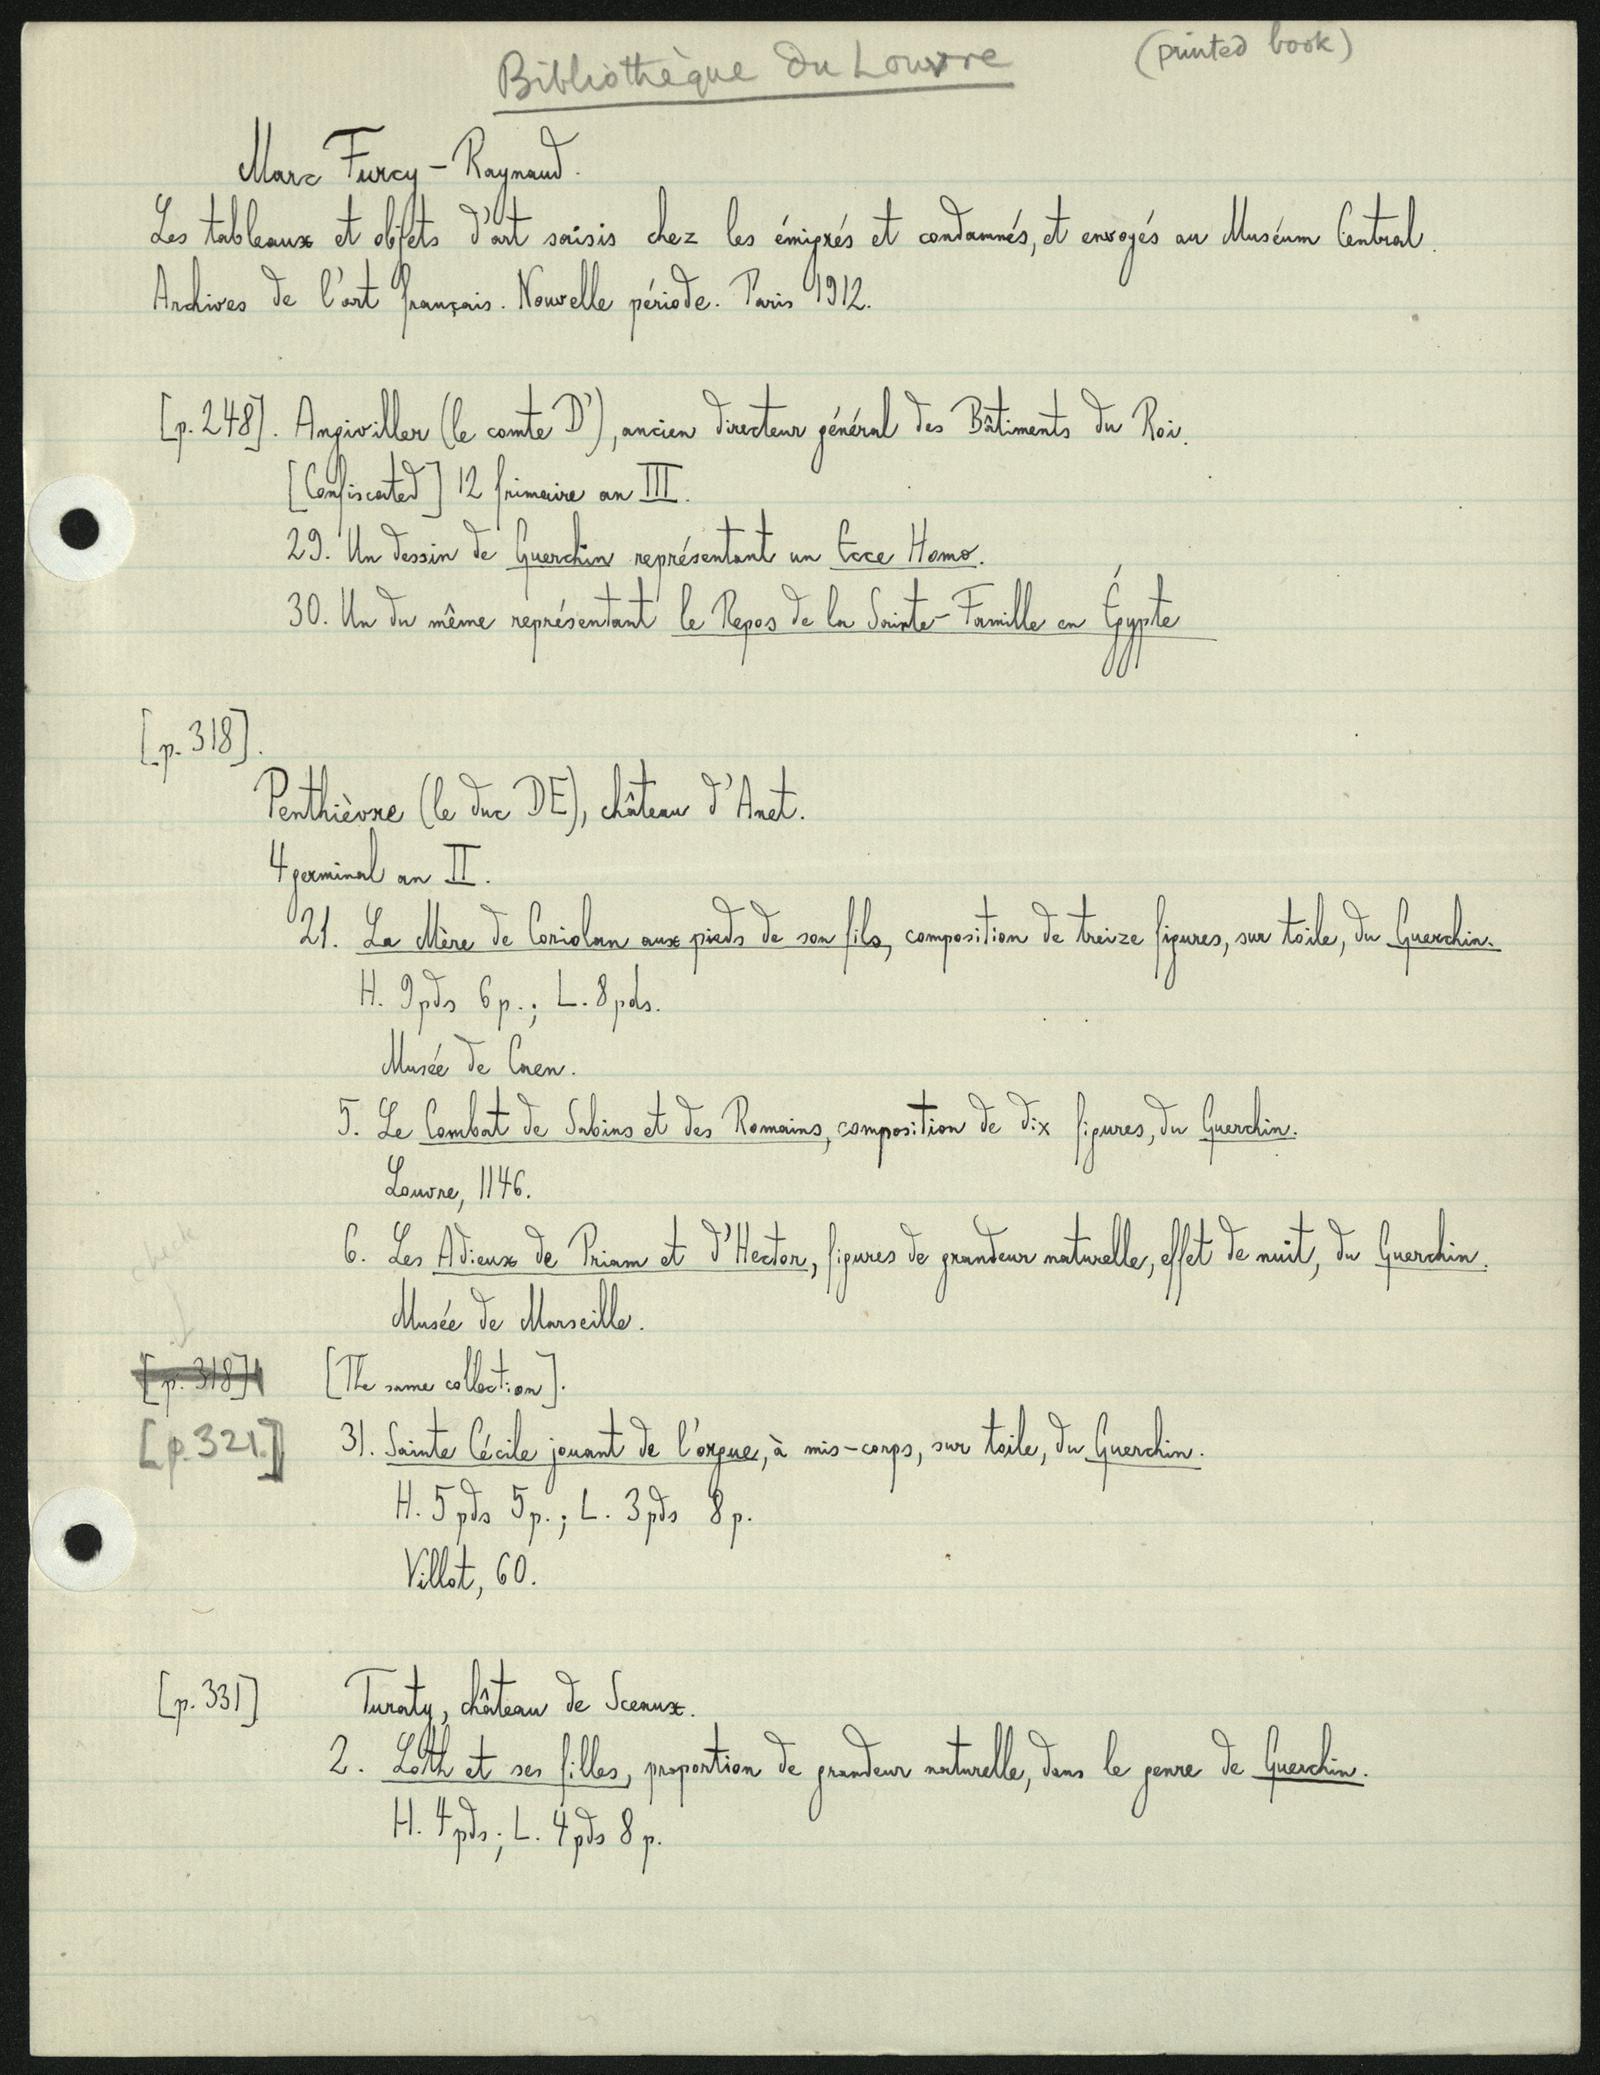 Bibliothèque du Louvre (printed book)
Marc Furcy-Raynaud.
Les tableaux et objets d'art saisis chez les émigrés et condamnés, et envoyés au Muséum Central.
Archives de l'art français. Nouvelle période. Paris 1912.
[p. 248]. Angiviller (le comte D'), ancien directeur général des Bâtiments du Roi.
[Confiscated] 12 frimaire an III.
29. Un dessin de Guerchin représentant un Ecce Homo.
30. Un du même représentant le Repos de la Sainte-Famille en Égypte
[p. 318].
Penthièvre (le duc DE), château d'Anet.
4 germinal an II.
21. La Mère de Coriolan aux pieds de son fils, composition de treize figures, sur toile, du Guerchin.
H. 9 pds 6 p.; L. 8 pds.
Musée de Caen.
5. Le Combat de Sabins et des Romains, composition de dix figures, du Guerchin.
Louvre, 1146.
6. Les Adieux de Priam et d'Hector, figures de grandeur naturelle, effet de nuit, du Guerchin.
check
Musée de Marseille.
[p. 318] [The same collection].
[p. 321.] 31. Sainte Cécile jouant de l'orgue, à mis-corps, sur toile, du Guerchin.
H. 5 pds 5 p.; L. 3 pds 8 p.
Villot, 60.
[p. 331] Turaty, château de Sceaux.
2. Loth et ses filles, proportion de grandeur naturelle, dans le genre de Guerchin.
H. 4 pds.; L. 4 pds 8 p.